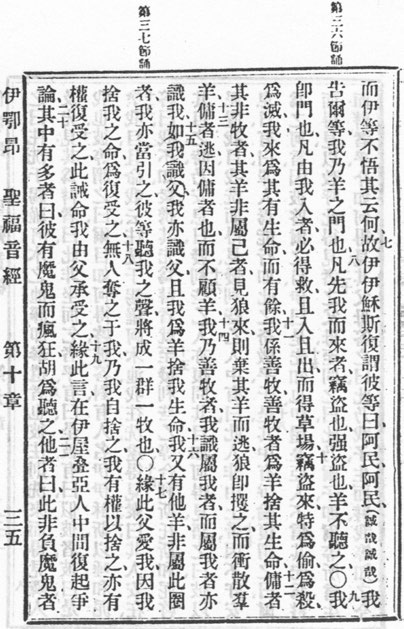 第三六節誦
第三七節誦
而伊等不悟其云何、七故伊伊穌斯復謂彼等曰阿民阿民（誠哉誠哉）我
告爾等我乃羊之門也、八凡先我而來者竊盜也强盜也羊不聽之〇九我
卽門也凡由我入者必得救且入且出而得草場、十竊盜來特爲偷爲殺
爲滅我來爲其有生命而有餘、十一我係善牧善牧者爲羊捨其生命、十二傭者
其非牧者其羊非屬己者見狼來則棄其羊而逃狼卽攫之而衝散羣
羊、十三傭者逃因傭者也而不顧羊、十四我乃善牧者我識屬我者而屬我者亦
識我、十五如我識父我亦識父且我爲羊捨我生命、十六我又有他羊非屬此圈
者我亦當引之彼等聽我之聲將成一群一牧也〇十七緣此父愛我因我
捨我之命爲復受之、十八無人奪之于我乃我自捨之我有權以捨之亦有
權復受之此誡命我由父承受之、十九緣此言在伊屋叠亞人中間復起爭
論、二十其中有多者曰彼有魔鬼而瘋狂胡爲聽之、二一他者曰此非負魔鬼者
伊鄂昂 聖福音經 第十章 三五